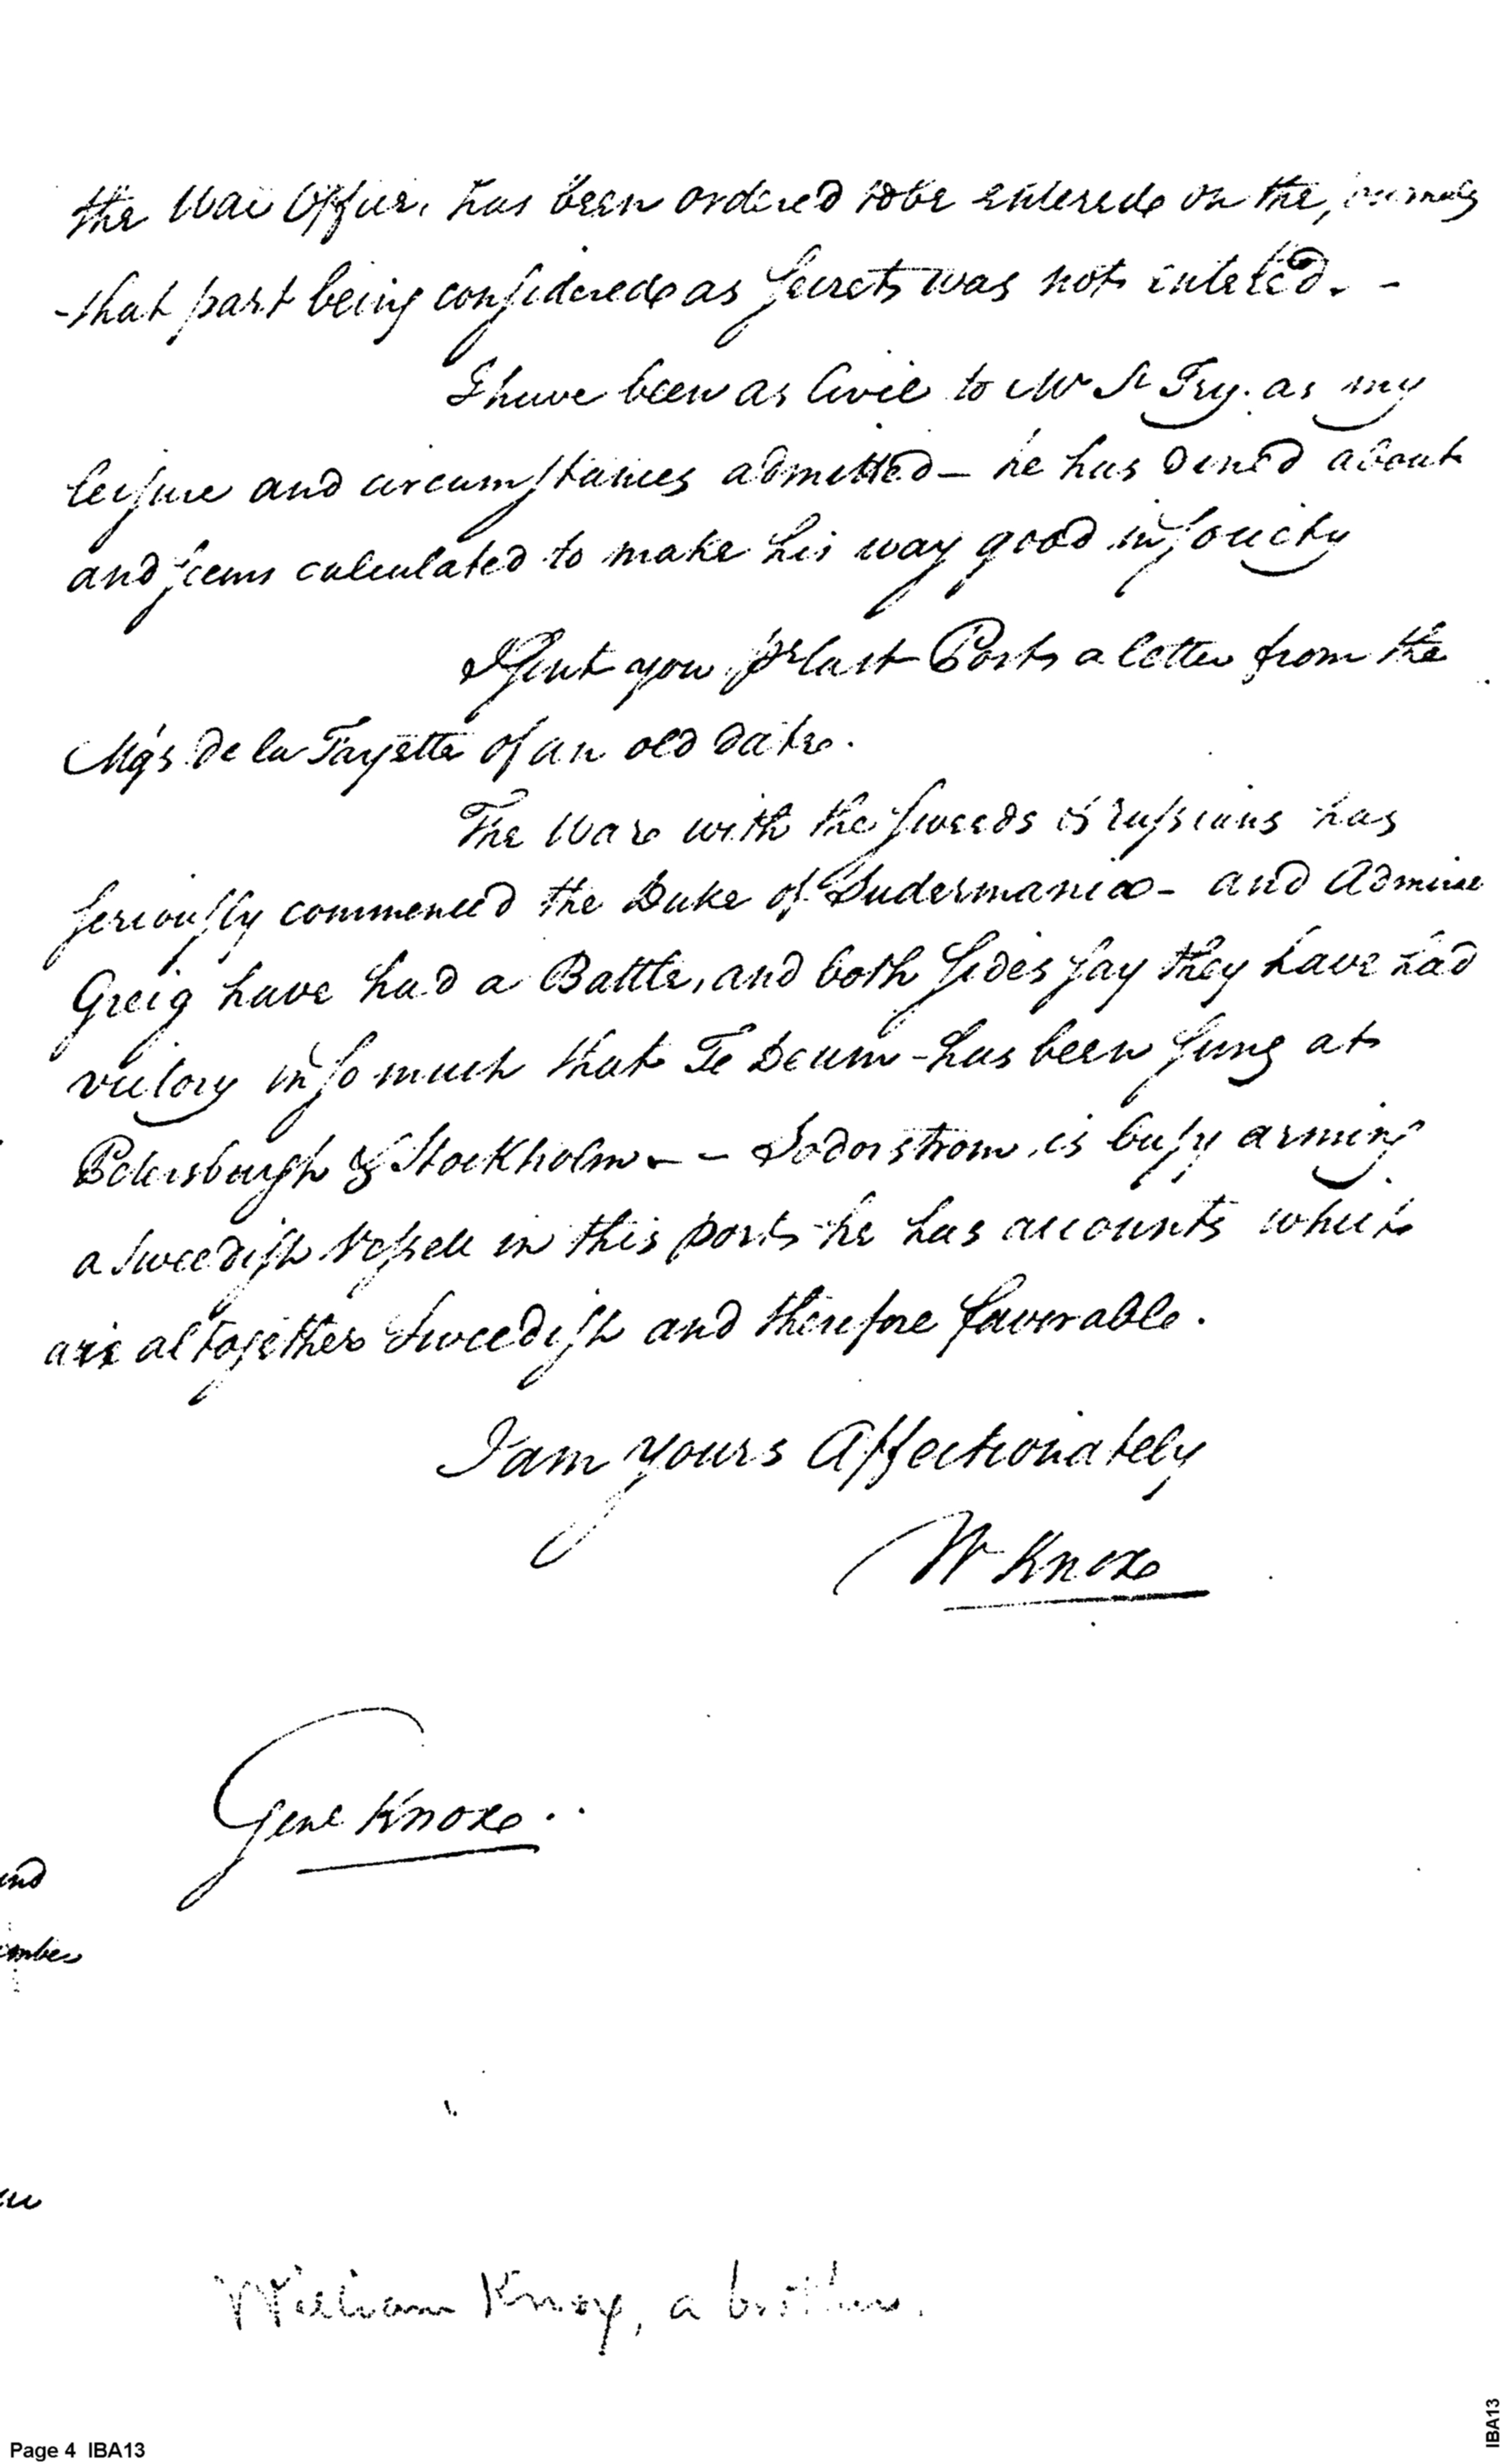 the War Office, has been ordered to be entered on the journals
-that part being considered as Secret was not entered. -
I have been as Civil to Mr St Try. as my
leisure and circumstances admitted - he has dined about
and seems calculated to make his way good in society
I Sent you pr last Post a letter from the
Mqs. De la Fayette of an old date.
The War with the Sweeds & russians has
seriously commenced the Duke of Sudermania - and Admiral
Greig have had a Battle, and both sides say they have had
victory in so much that Te Deum - has been sung at
Petersburgh & Stockholm - - Soderstrom is busy arming
a Sweedish Vessell in this port he has accounts which
are altogether Sweedish and therefore favorable.
I am yours Affectionately
W Knox
Genl Knox..
and
ember
William Knox, a brother.
Page 4 IBA13
IBA13